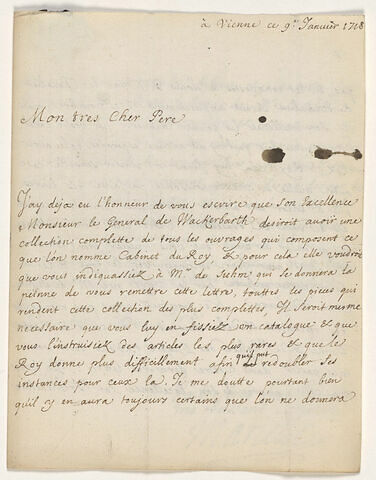 à Vienne ce 9e Janvier 1718
Mon tres Cher Pere
J'ay deja eu l'honneur de vous escrire que Son Excellence
Monsieur le General de Wackerbarth desiroit avoir une
collection complette de tous les ouvrages qui composent ce
que l'on nomme Cabinet du Roy, & pour cela elle voudroit
que vous indiquassiez à Mr. de Suhm qui se donnera la
peinne de vous remettre cette lettre, touttes les pieces qui
rendent cette collection des plus complettes. Il seroit mesme
necessaire que vous luy en fissiez un catalogue & que
vous l'instruisiez des articles les plus rares & que le
Roy donne plus difficillement afin qu'il put redoubler ses
instances pour ceux la. Je me doutte pourtant bien
qu'il y en aura toujours certains que l'on ne donnera